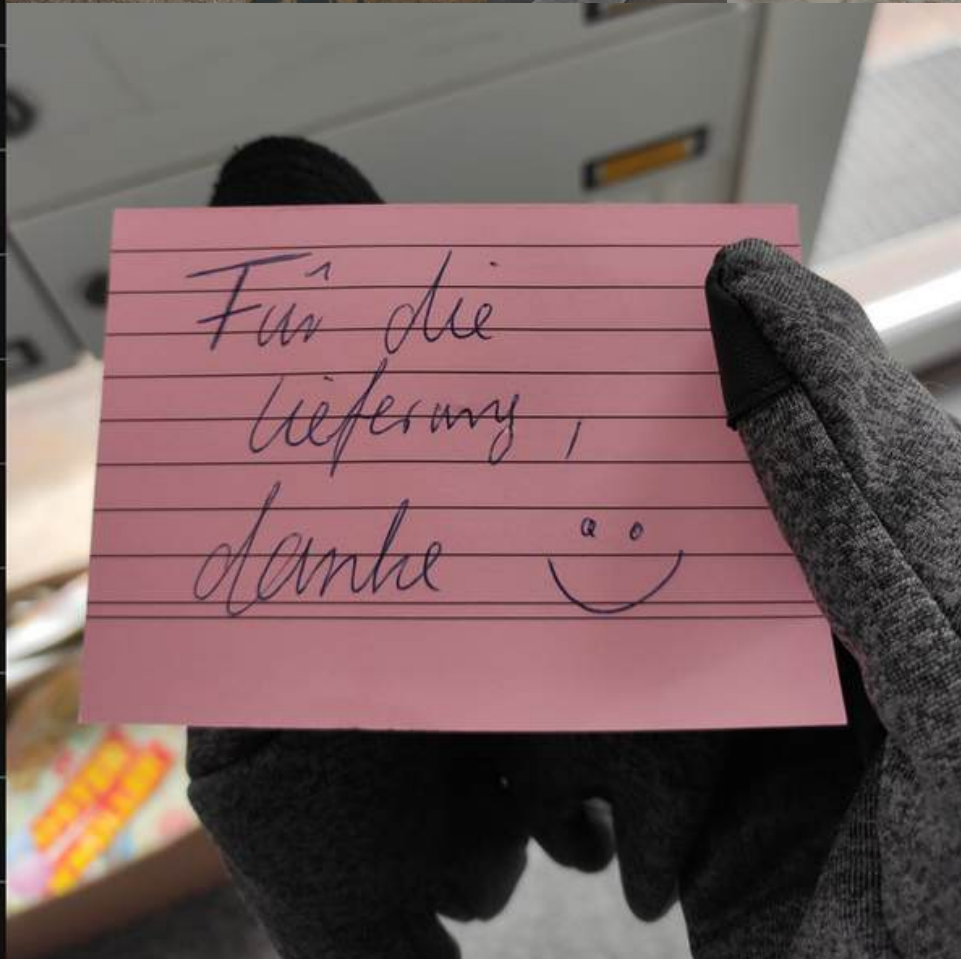 Für die
lieferung,
danke